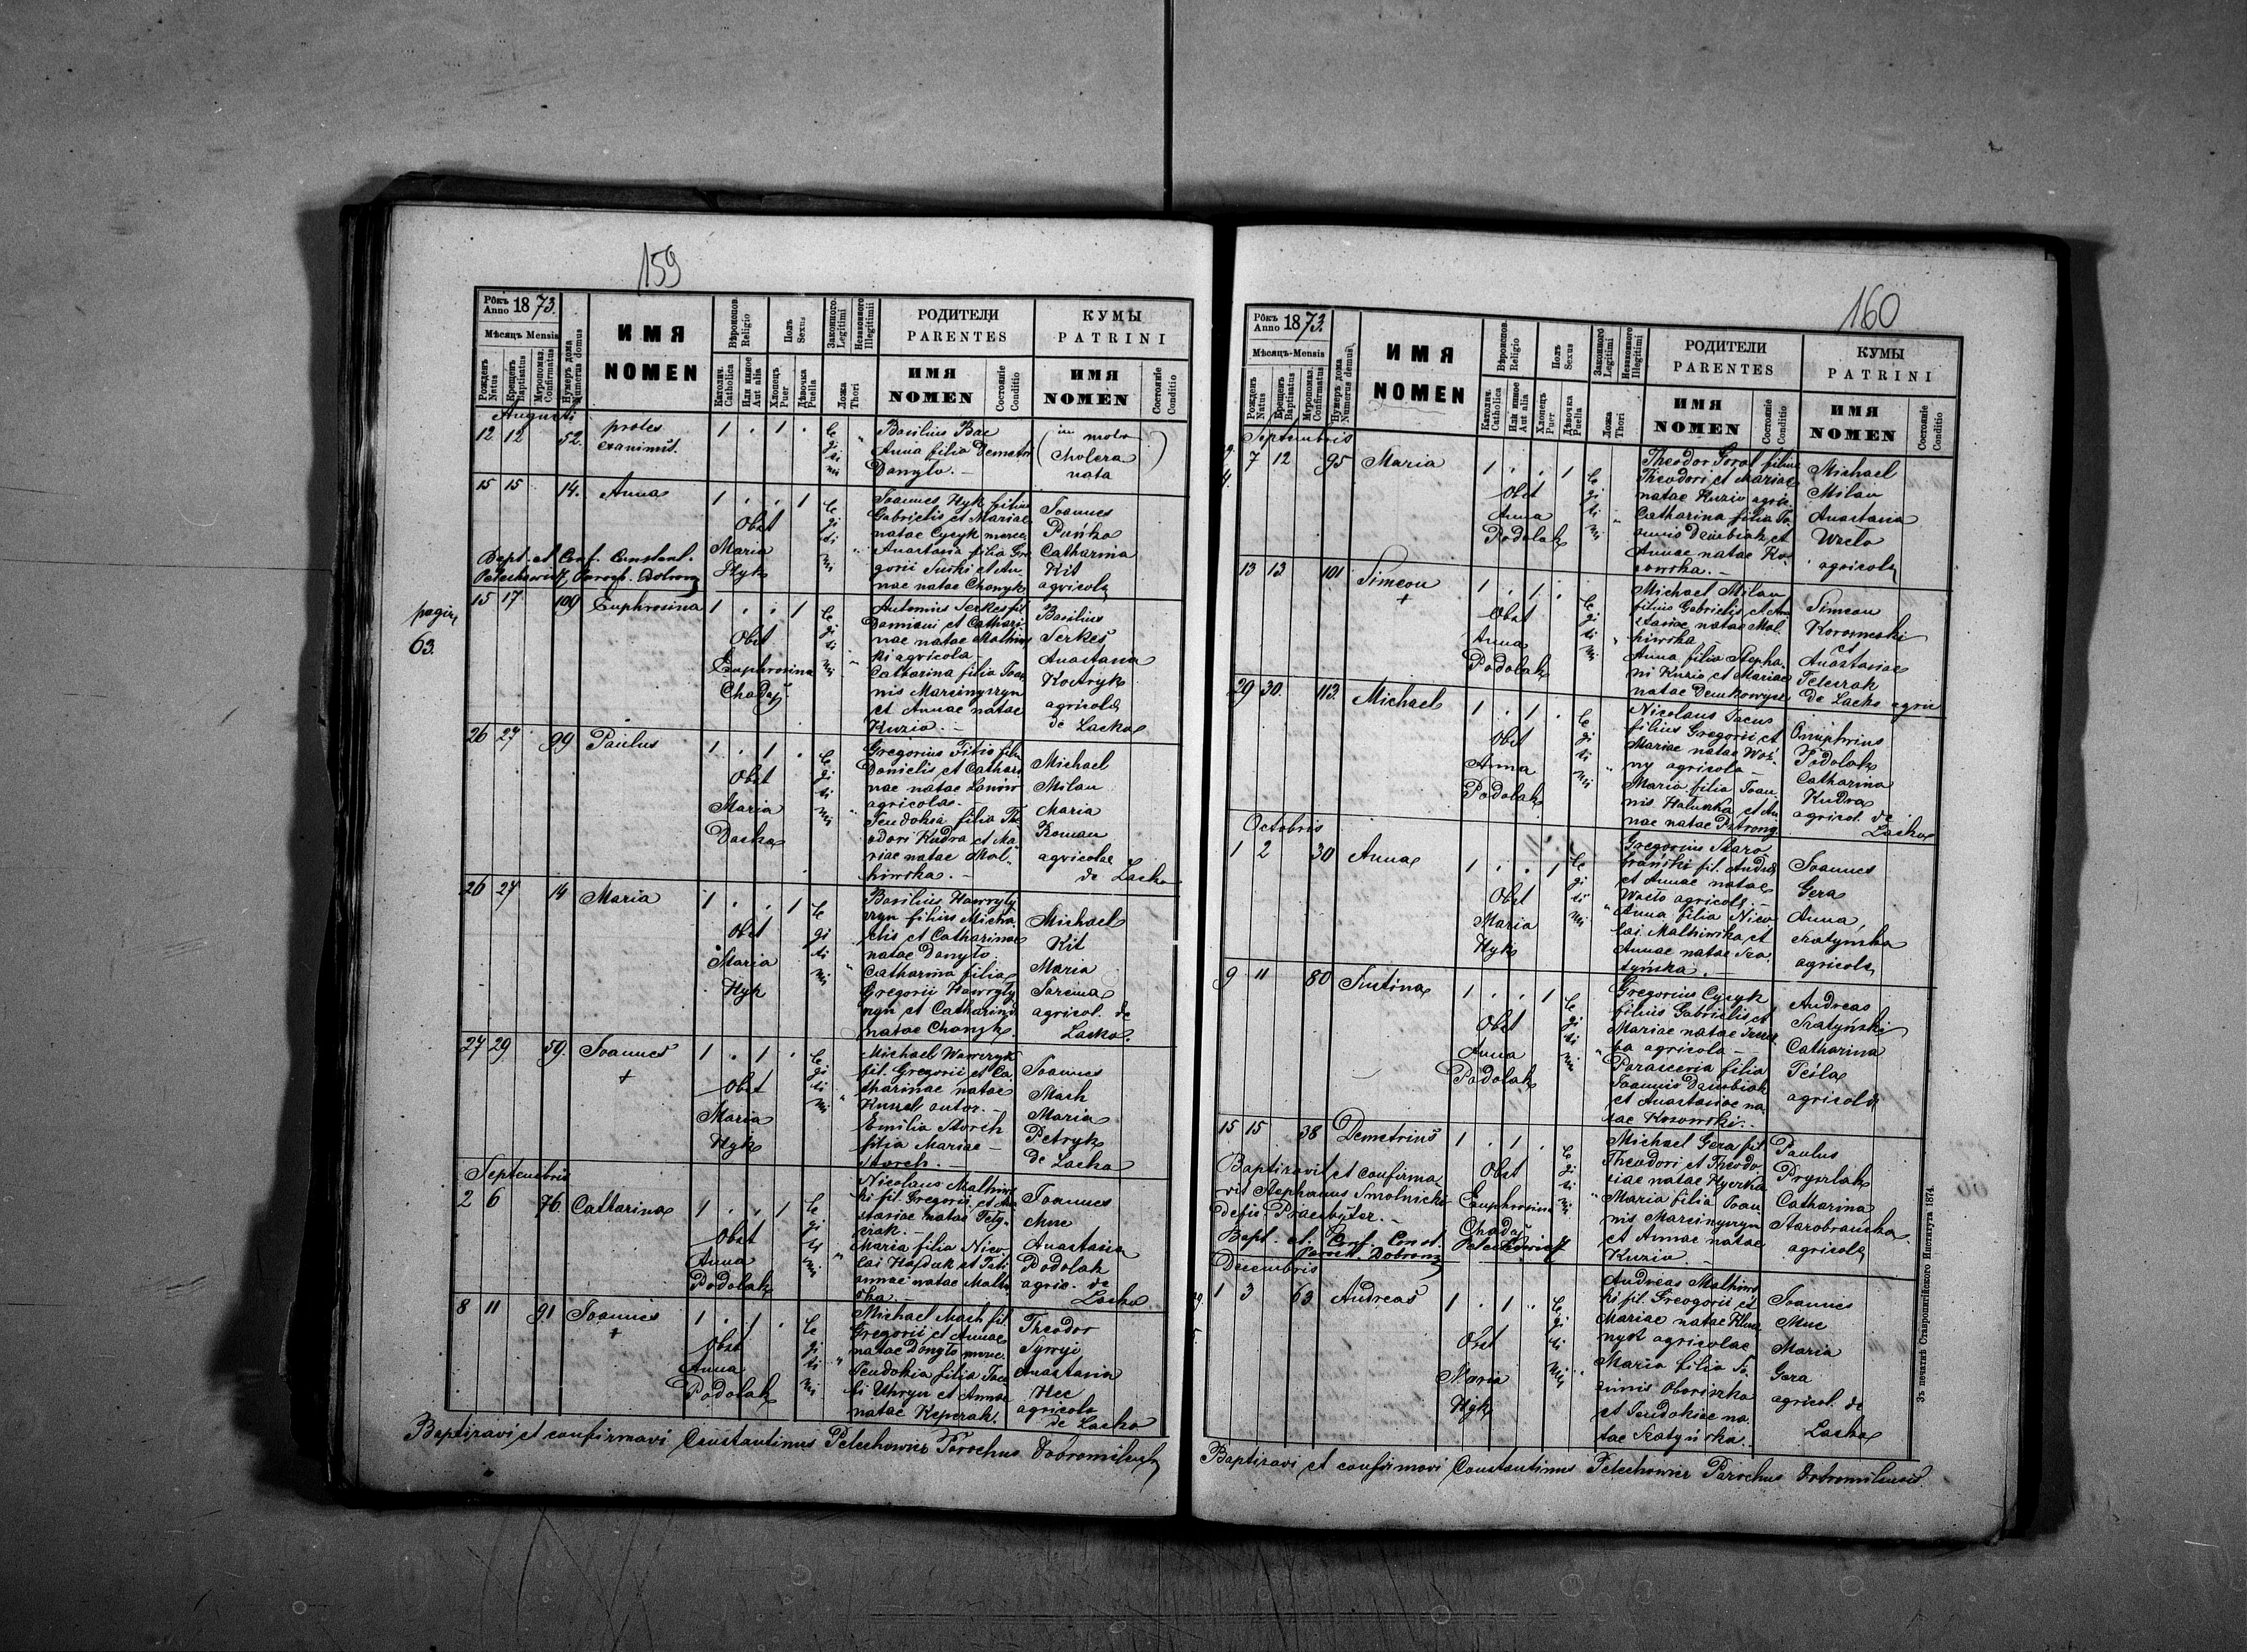 159
Рôкъ Anno 1873.
Мѣсяцъ Mensis
Рожденъ Natus
Крещенъ Baptisatus
Муропомаз. Confirmatus
Нумеръ дома Numerus domus
ИМЯ
NOMEN
Вѣроиспов. Religio
Католич. Catholica
Или иное Aut alia
Полъ Sexus
Хлопецъ Puer
Дѣвочка Puella
Законного Legitimi
Незаконного Illegitimi
Ложа Thori
РОДИТЕЛИ
PARENTES
ИМЯ
NOMEN
Состояніе Conditio
КУМЫ
PATRINI
ИМЯ
NOMEN
Состояніе Conditio
Augusti
12 12 52. proles
exanimis.
1 . 1 .
le
gi
ti
mi
Basilius Bac
Anna filia Demetri
Danyło. –
(in motu
Cholera
nata)
15 15 14. Anna
1 . . 1
Obst
Maria
Hyk
Bapt. et Conf. Constant.
Petechowicz, Paroch. Dobrom
le
gi
ti
mi
Joannes Hyk filius
Gabrielis et Mariae
natae Cycyk
Anastasia filia Gre
gorii et An
nae natae Chomyk
Joannes
Puńko
Catharina
Kit
agricola
pagin
63.
15 17 109 Euphrosina
1 . . 1
Obst
Euphrosina
Chaday
le
gi
ti
mi
Antonius Serkes fil
Damiani et Cathari
nae natae Malhiws
ki agricola –
Catharina filia Joan
nis Marcinyszyn
et Annae natae
Kuzio. –
Basilius
Serkes
Anastasia
Kostryk
agricola
de Lacko
26 27 99 Paulus
1 . 1 .
Obst
Maria
Dacko
le
gi
ti
mi
Gregorius Fitio filiu
Danielis et Cathari
nae natae
agricolae.
Teudokia filia The
odori Kudra et Ma
riae natae Mal
hiwska. –
Michael
Milan
Maria
Roman
agricolae
de Lacko
26 27 14 Maria
1 . . 1
Obst
Maria
Hyk
le
gi
ti
mi
Basilius Hawryły
szyn filius Micha
elis et Catharinae
natae Danyło
Catharina filia
Gregorii Hawryły
szyn et Catharina
natae Chomyk.
Michael
Kit
Maria
Sarema
agricol. de
Lacko.
27 29 59. Joannes
+
1 . 1 .
Obst
Maria
Hyk
le
gi
ti
mi
Michael Wawczyk
fil. Gregorii et Ca
tharinae natae
Emilia Storch
filia Mariae –
Storch. –
Joannes
Mach
Maria
Petryk
de Lacko
Septembris
2 6 76. Catharina
1 . . 1
Obst
Anna
Podolak
le
gi
ti
mi
Nicolaus Malhiws
ki fil. Gregorii et Ana
stasiae natae Tele
szak. –
Maria filia Nico
lai Hajduk et Tati
annae natae Malhi
ska. –
Joannes
Muc
Anastasia
Podolak
agric. de
Lacko
8 11 91 Joannes
+
1 . 1 .
Obst
Anna
Podolak
le
gi
ti
mi
Michael Mach fil.
Gregorii et Annae
natae Danyło
Teudokia filia Jac
et Annae
natae Keperak.
Theodor
Anastasia
Hec
agricola
de Lacko
Baptizavi et confirmavi Constantinus Petechowicz Parochus Dobromilensis
160
Рôкъ Anno 1873.
Мѣсяцъ-Mensis
Рожденъ Natus
Крещенъ Baptisatus
Муропомаз. Confirmatus
Нумеръ дома Numerus domus
ИМЯ
NOMEN
Вѣроиспов. Religio
Католич. Catholica
Или иное Aut alia
Полъ Sexus
Хлопецъ Puer
Дѣвочка Puella
Законного Legitimi
Незаконного Illegitimi
Ложа Thori
РОДИТЕЛИ
PARENTES
ИМЯ
NOMEN
Состояніе Conditio
КУМЫ
PATRINI
ИМЯ
NOMEN
Состояніе Conditio
Septembris
7 12 95 Maria
1 . . 1
Obst
Anna
Podolak
le
gi
ti
mi
Theodor Goral filius
Theodori et Mariae
natae Kuziw agric.
Catharina filia Jo
annis Daubiak et
Annae natae Ko
sowska. –
Michael
Milan
Anastasia
Wacło
agricola
13 13 101 Simeon
+
1 . 1 .
Obst
Anna
Podolak
le
gi
ti
mi
Michael Milan
filius Gabrielis et Ana
stasiae natae Mal
hiwska –
Anna filia Stepha
ni Kuzio et Mariae
natae Demkowycz
Simeon
Korosneski
et
Anastasiae
Teleszak
de Lacko agric
29 30. 113. Michael
1 . 1 .
Obst
Anna
Podolak
le
gi
ti
mi
Nicolaus Jacus
filius Gregorii et
Mariae natae Woź
ny agricola –
Maria filia Joan
nis Haluszka et An
nae natae Patrong
Onuphrius
Podolak
Catharina
Kudra
agricol. de
Lacko
Octobris
1 2 30 Anna
1 . . 1
Obst
Maria
Hyk
le
gi
ti
mi
Gregorius Staro
brański fil. Andreae
et Annae natae
Wacło agricola. –
Anna filia Nico
lai Malhiwska et
Annae natae Sza
tyńska. –
Joannes
Gera
Anna,
Szatyńska
agricola
9 11 80 Justina
1 . . 1
Obst
Anna
Podolak
le
gi
ti
mi
Gregorius Cycyk
filius Gabrielis et
Mariae natae
ba agricola –
Parascevia filia
Joannis Daubiak
et Anastasiae na
tae Kosowski. –
Andreas
Szatyński
Catharina
Teśla
agricola
15 15 38 Demetrius
1 . 1 .
Obst
Euphrosina
Chaday
Baptizavit et confirma
vit Stephanus Smolnicki
Presbyter. –
Bapt. et. Conf. Const. Petechowicz
Paroch. Dobrom
le
gi
ti
mi
Michael Gera fil
Theodori et Theodo
siae natae Hyczka
Maria filia Joan
nis Marcinyszyn
et Annae natae
Kuziw. –
Paulus
Pryszlak
Catharina
Starobrańska
agricola
Decembris
1 3 63 Andreas
1 . 1 .
Obst
Maria
Hyk
le
gi
ti
mi
Andreas Malhiws
ki fil. Greogorii et
Mariae natae
agricolae
Maria filia Jo
annis Oboriszka
et Teudokiae na
tae Szatyńska. –
Joannes
Muc
Maria
Gera
agricol. de
Lacko
Baptizavi et confirmavi Constantinus Petechowicz Parochus Dobromilensis.
Зъ печатнѣ Ставропигійского Института 1874.